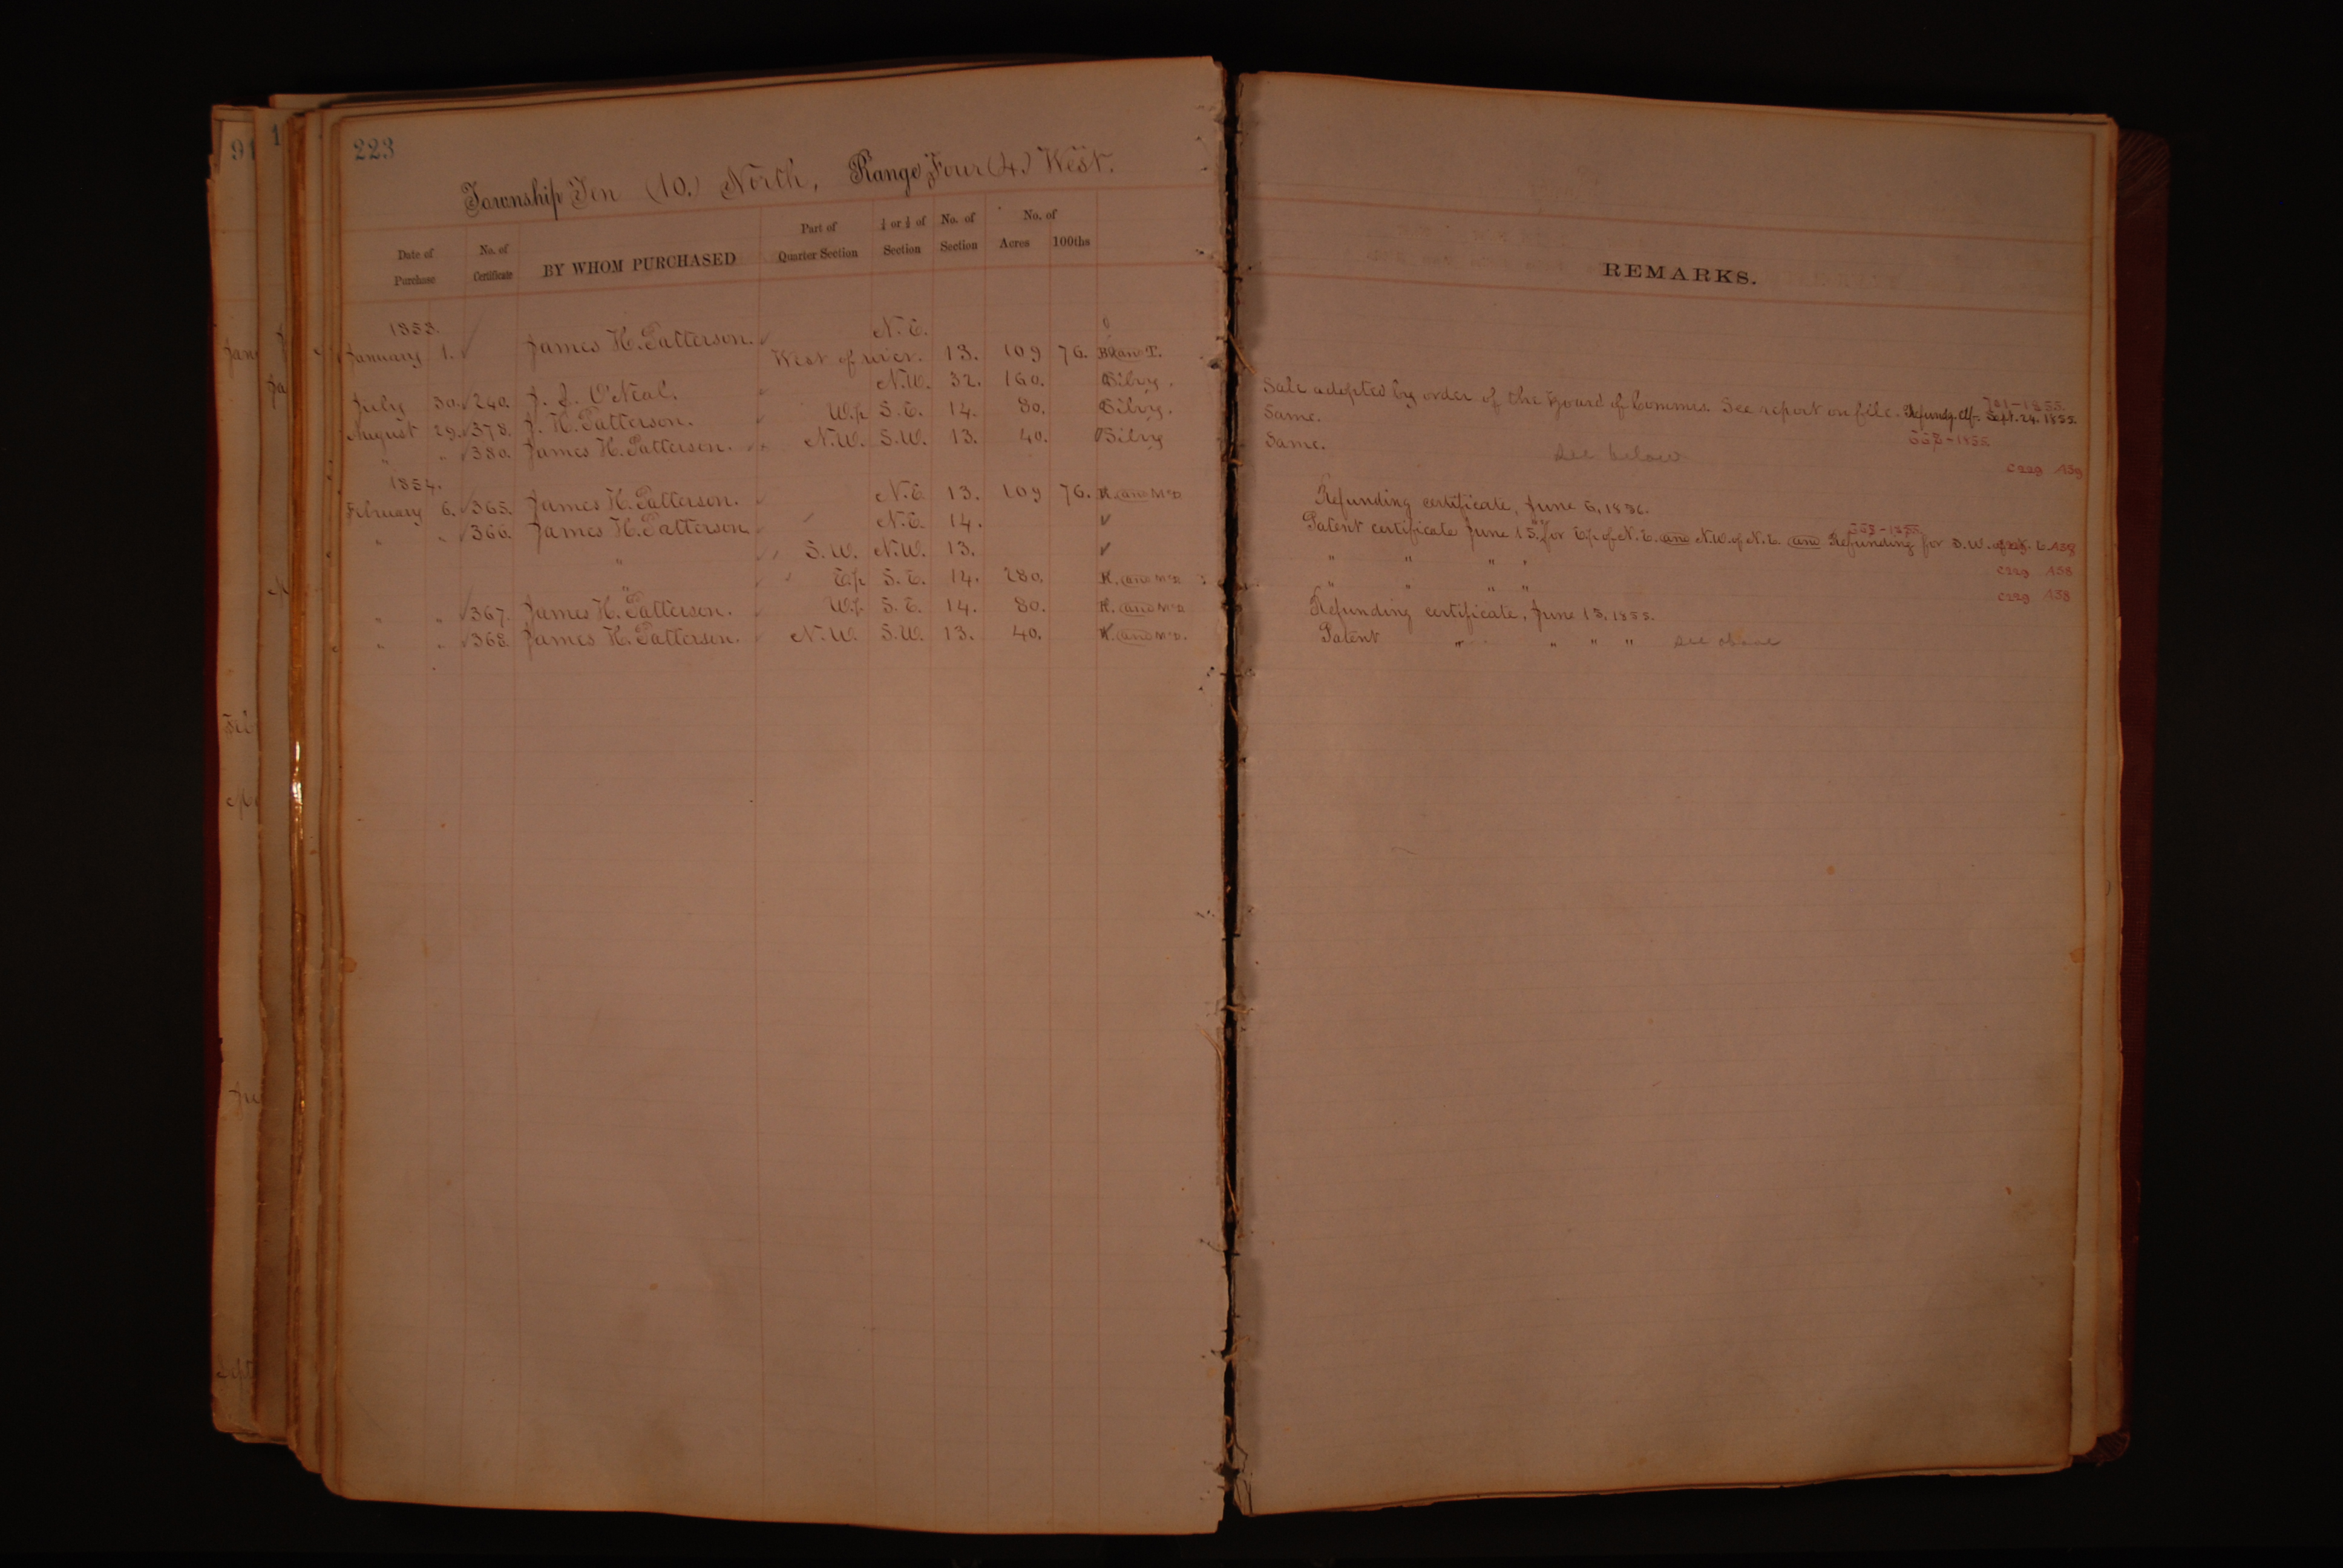 91
1
223
Township Ten (10.) North, Range Four (4.) West.
Date of Purchase No. of Certificate BY WHOM PURCHASED Part of Quarter Section ¼ or ½ of Section No. of Section No. of Acres 100ths
REMARKS.
1853.
January 1. James H. Patterson. N.E. West of river. 13. 109 76.
July 30. 240. J. J. O'Neal. N.W. 32. 160. Silvy. Sale adopted by order of the Board of Commrs. See report on file. Refundg. Sept. 24. 1855.
August 29. 378. J. H. Patterson. W.½ S.E. 14. 80. Silvy. Same.
" " 380. James H. Patterson. N.W. S.W. 13. 40. Silvy Same. See below C229 A59
1854.
February 6. 365. James H. Patterson. N.E 13. 109 76. H. and McD Refunding certificate, June 6, 1856.
" " 366. James H. Patterson N.E. 14. Patent certificate June 15, for E½ of N.E. and N.W. of N.E. and Refunding for S.W. of N.E. A58
" S.W. N.W. 13. " " " " C229 A58
" E.½ S.E. 14. 280. H. and McD " " " " C229 A58
" " 367. James H. Patterson. W.½ S.E. 14. 80. H. and McD Refunding certificate, June 15, 1855.
" " 368. James H. Patterson. N.W. S.W. 13. 40. H. and McD. Patent " " " " See above